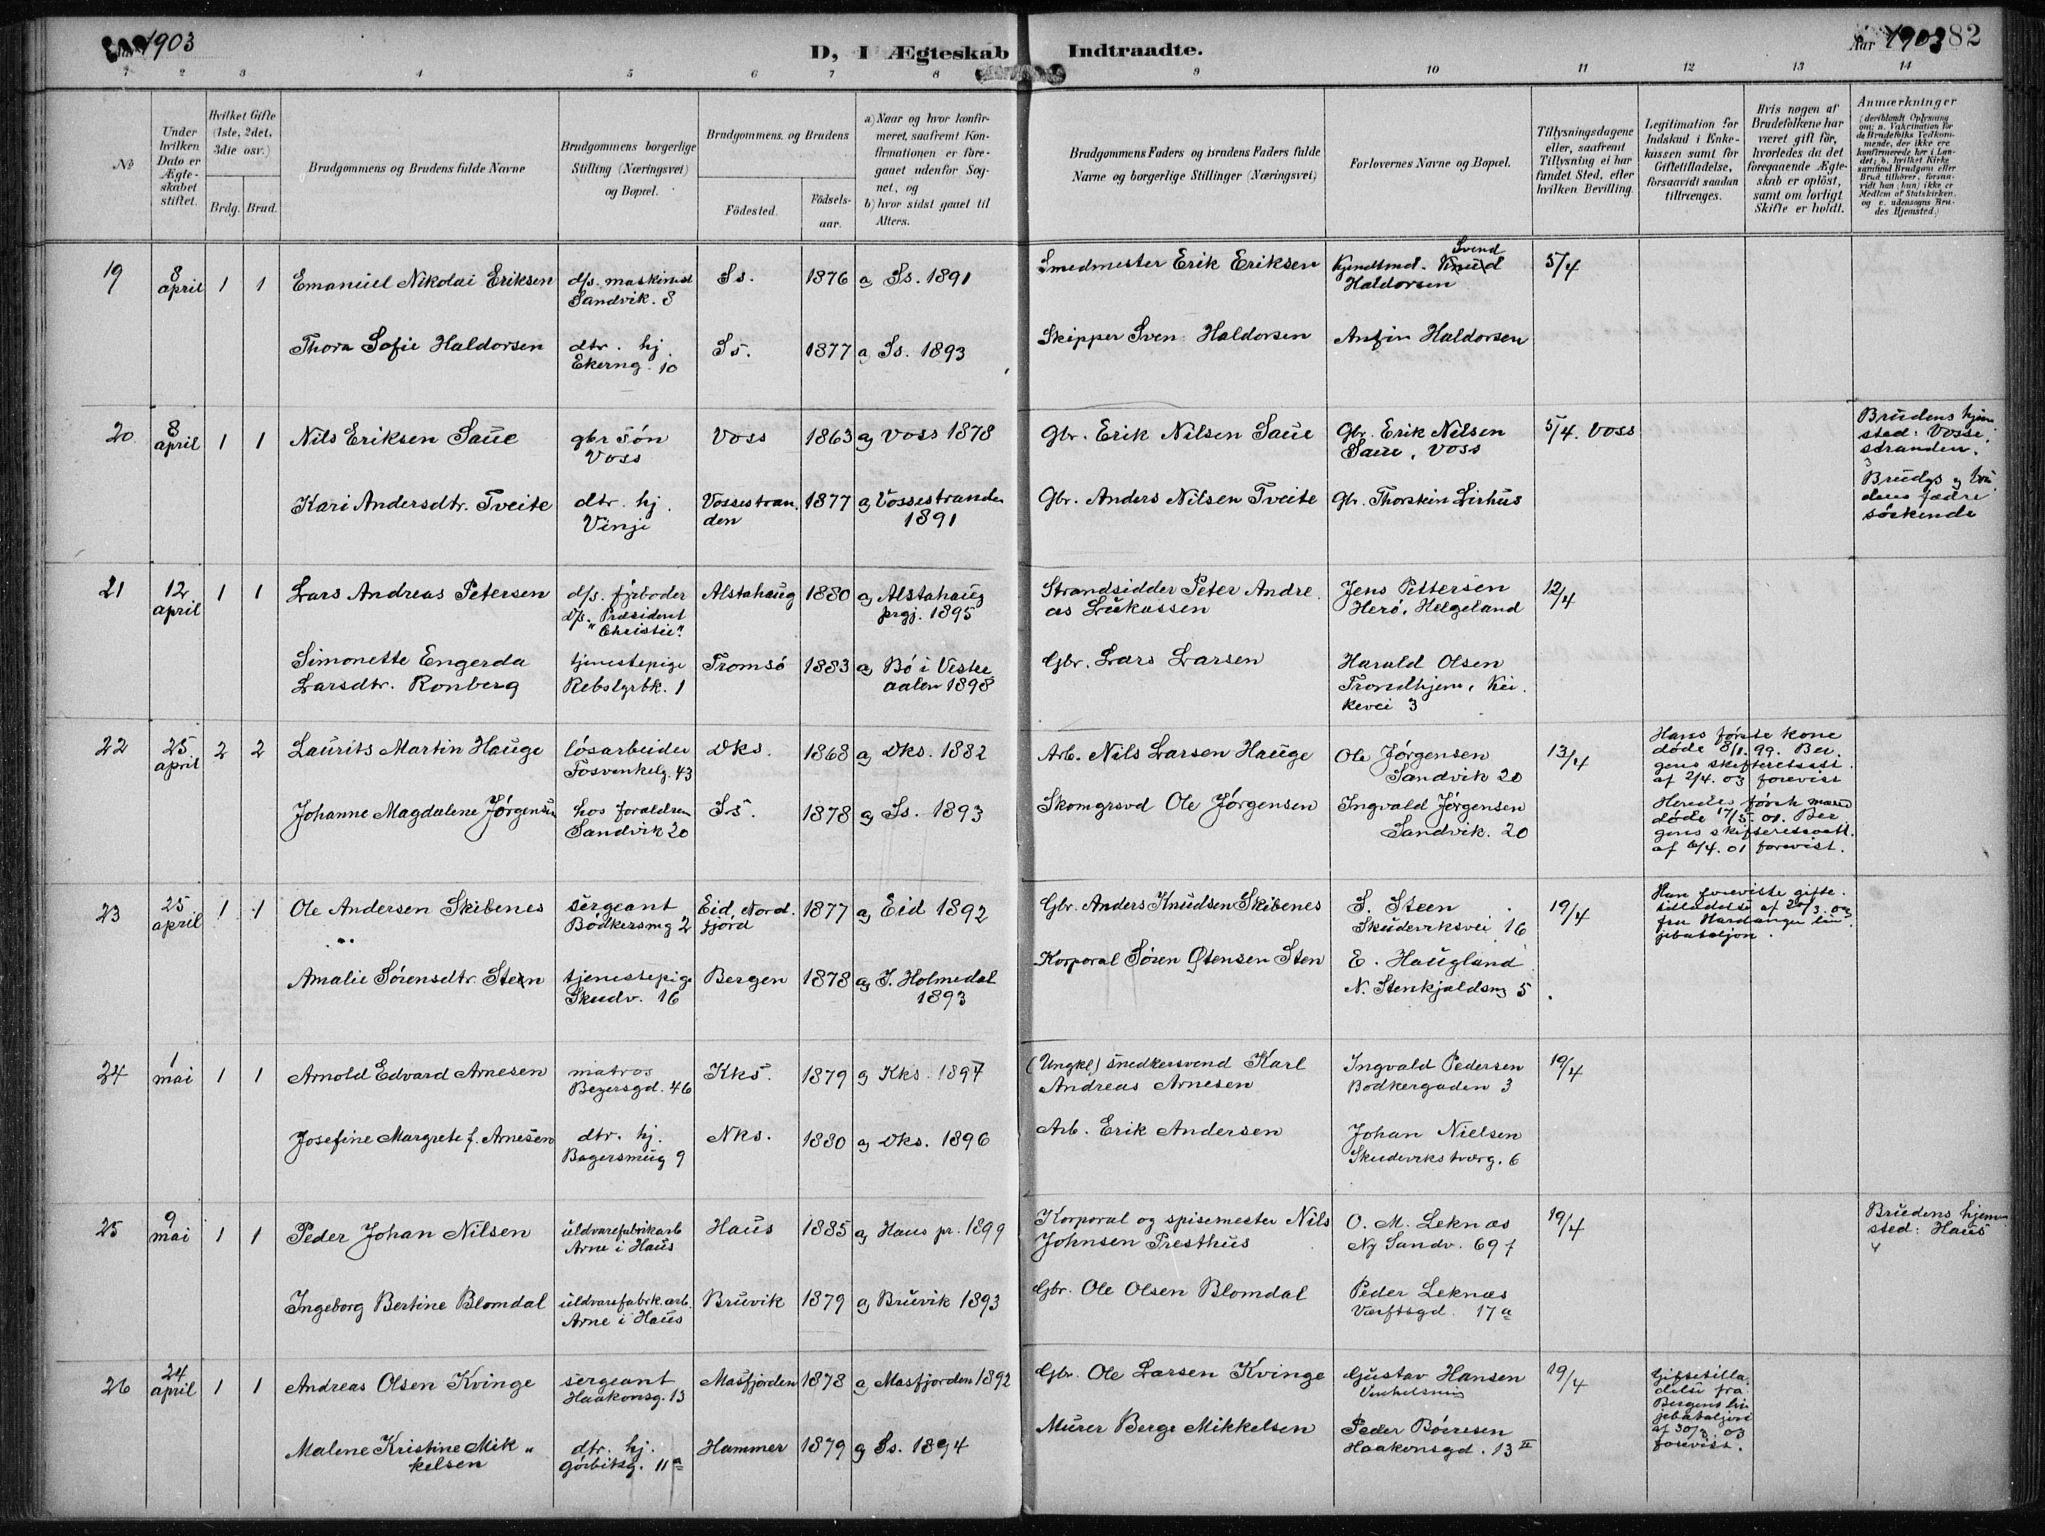 1903
D, I Ægteskab Indtraadte.
Aar 1903 82
1 2 3 4 5 6 7 8 9 10 11 12 13 14
No
Under hvilken Dato er Ægteskabet stiftet.
Hvilket Gifte (1ste, 2det, 3die osv.)
Brdg. Brud.
Brudgommens og Brudens fulde Navne
Brudgommens borgerlige Stilling (Næringsvei) og Bopæl.
Brudgommens og Brudens
Födested.
Födselsaar.
a) Naar og hvor konfirmeret, saafremt Konfirmationen er foregaaet udenfor Sognet, og
b) hvor sidst gaaet til Alters.
Brudgommens Faders og Brudens Faders fulde Navne og borgerlige Stillinger (Næringsvei)
Forlovernes Navne og Bopæl.
Tillysningsdagene eller, saafremt Tillysning ei har fundet Sted, efter hvilken Bevilling.
Legitimation for Indskud i Enkekassen samt for Giftetilladelse, forsaavidt saadan tiltrænges.
Hvis nogen af Brudefolkene har været gift för, hvorledes da det foregaaende Ægteskab er oplöst, samt om lovligt Skifte er holdt.
Anmærkninger
19 8 april 1 1 Emanuel Nikolai Eriksen d/s. maskinist Sandvik. 8 Ss. 1876 a) Ss. 1891 Smedmester Erik Eriksen Svend Haldorsen 5/4
Thora Sofie Haldorsen dtr. hj. Ekerng. 10 Ss. 1877 a) Ss. 1893 Skipper Sven Haldorsen Anfin Haldorsen
20 8 april 1 1 Nils Eriksen Saue gbr søn Voss Voss 1863 a) Voss 1878 Gbr. Erik Nilsen Saue Gbr. Erik Nilsen Saue, Voss 5/4. Voss Brudens hjemsted: Vossestranden.
Kari Andersdtr. Tveite dtr. hj. Vinje Vossestranden 1877 a) Vossestranden 1891 Gbr. Anders Nilsen Tveite Gbr. Thorstein Lirhus Brudgs og brudens fædre søskende
21 12 april 1 1 Lars Andreas Petersen d/s. fyrbøder d/s. "Præsident Christie". Alstahaug 1880 a) Alstahaug prgj. 1895 Strandsidder Peter Andreas Lukassen Jens Pettersen Herø, Helgeland 12/4
Simonette Engerda Larsdtr. Ronberg tjenestepige Rebslgrbk. 1 Tromsø 1883 a) Bø i Vesteraalen 1898 Gbr. Lars Larsen Harald Olsen Trondhjem,
22 25 april 2 2 Laurits Martin Hauge løsarbeider 43 Dks. 1868 a) Dks. 1882 Arb. Nils Larsen Hauge Ole Jørgensen Sandvik 20 13/4 Hans første kone døde 8/1. 99. Bergens skifteretsatt. af 2/4. 03 forevist
Johanne Magdalene Jørgensen hos forældren Sandvik 20 Ss. 1878 a) Ss. 1893 Skomgrsvd Ole Jørgensen Ingvald Jørgensen Sandvik. 20 Hendes første mand døde 17/5. 01. Bergens skifteretsatt. af 01 forevist.
23 25 april 1 1 Ole Andersen Skibenes sergeant Bødkersmg 2 Eid, Nordfjord 1877 a) Eid 1892 Gbr. Anders Knudsen Skibenes S. Steen Skudeviksvei 16 19/4 Han foreviste giftetilladelse af 20/3. 03 fra Hardanger linjebataljon.
Amalie Sørensdtr. Steen tjenestepige Skudv. 16 Bergen 1878 a) Y. Holmedal 1893 Korporal Søren Østensen Sten E. Haugland N. Stenkjeldsmg 5
24 1 mai 1 1 Arnold Edvard Arnesen matros 46 Kks. 1879 a) Kks. 1897 (Ungkl) snedkersvend Karl Andreas Arnesen Ingvald Pedersen Bødkergaden 3 19/4
Josefine Margrete f. Arnesen dtr. hj. Bagersmug 9 Nks. 1880 a) Dks. 1896 Arb. Erik Andersen Johan Nielsen Skudevikstværg. 6
25 9 mai 1 1 Peder Johan Nilsen uldvarefabrikarb Arne i Haus Haus 1885 a) Haus pr. 1899 Korporal og spisemester Nils Johnsen Presthus O. M. Leknæs Ny Sandv. 69 f 19/4 Brudens hjemsted: Haus
Ingeborg Bertine Blomdal uldvarefabrk.arb. Arne i Haus Bruvik 1879 a) Bruvik 1893 Gbr. Ole Olsen Blomdal Peder Leknæs Værftsgd. 17a
26 24 april 1 1 Andreas Olsen Kvinge sergeant Haakonsg. 13 Masfjorden 1878 a) Masfjorden 1892 Gbr. Ole Larsen Kvinge Gustav Hansen 19/4 Giftetilladelse fra Bergens linjebataljon af 30/3. 03 forevist.
Malene Kristine Mikkelsen dtr. hj. Gørbitsg. 11a Hammer 1879 a) Ss. 1894 Murer Berge Mikkelsen Peder Børresen Haakonsgd. 13 II